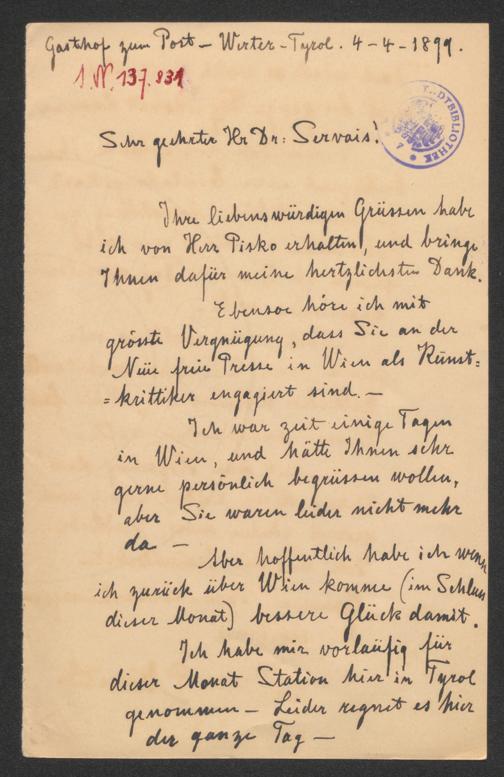 Gasthof zum Post – Werter – Tyrol. 4-4-1899.
I.N. 137.831
DTBIBLIOTHEK
Sehr geehrter Hr Dr: Servais!
Ihre liebenswürdigen Grüssen habe
ich von Herr Pisko erhalten, und bringe
Ihnen dafür meine hertzlichsten Dank.
Ebensoe höre ich mit
grösste Vergnügung, dass Sie an der
Nüe freie Presse in Wien als Kunst=
=krittiker engagiert sind. –
Ich war zeit einige Tagen
in Wien, und hätte Ihnen sehr
gerne persönlich begrüssen wollen,
aber Sie waren leider nicht mehr
da –
Aber hoffentlich habe ich wenn
ich zurück über Wien komme (im Schluss
dieser Monat) bessere Glück damit.
Ich habe mir vorläufig für
dieser Monat Station hier in Tyrol
genommen – Leider regnet es hier
der ganze Tag –